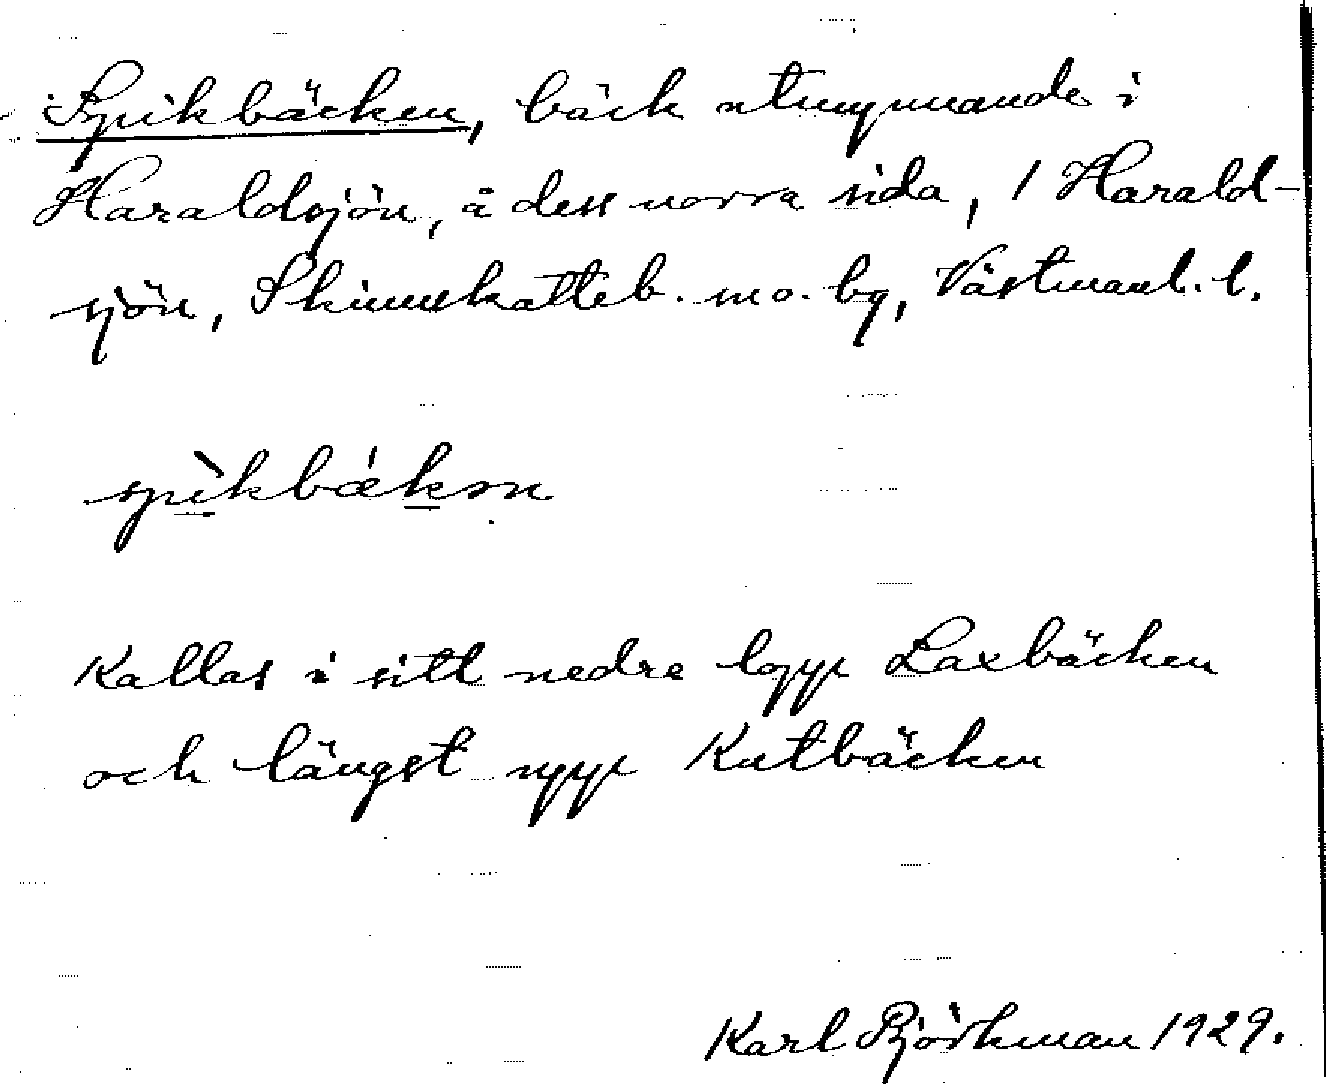 Spikbäcken, bäck utmynnande i
Haraldsjön, å dess norra sida, / Harald-
sjön, Skinnskatteb. sn o. bg, Västmanl. l.
spìkbǽkən
Kallas i sitt nedre lopp Laxbäcken
och längst upp Kutbäcken
Karl Björkman 1929.